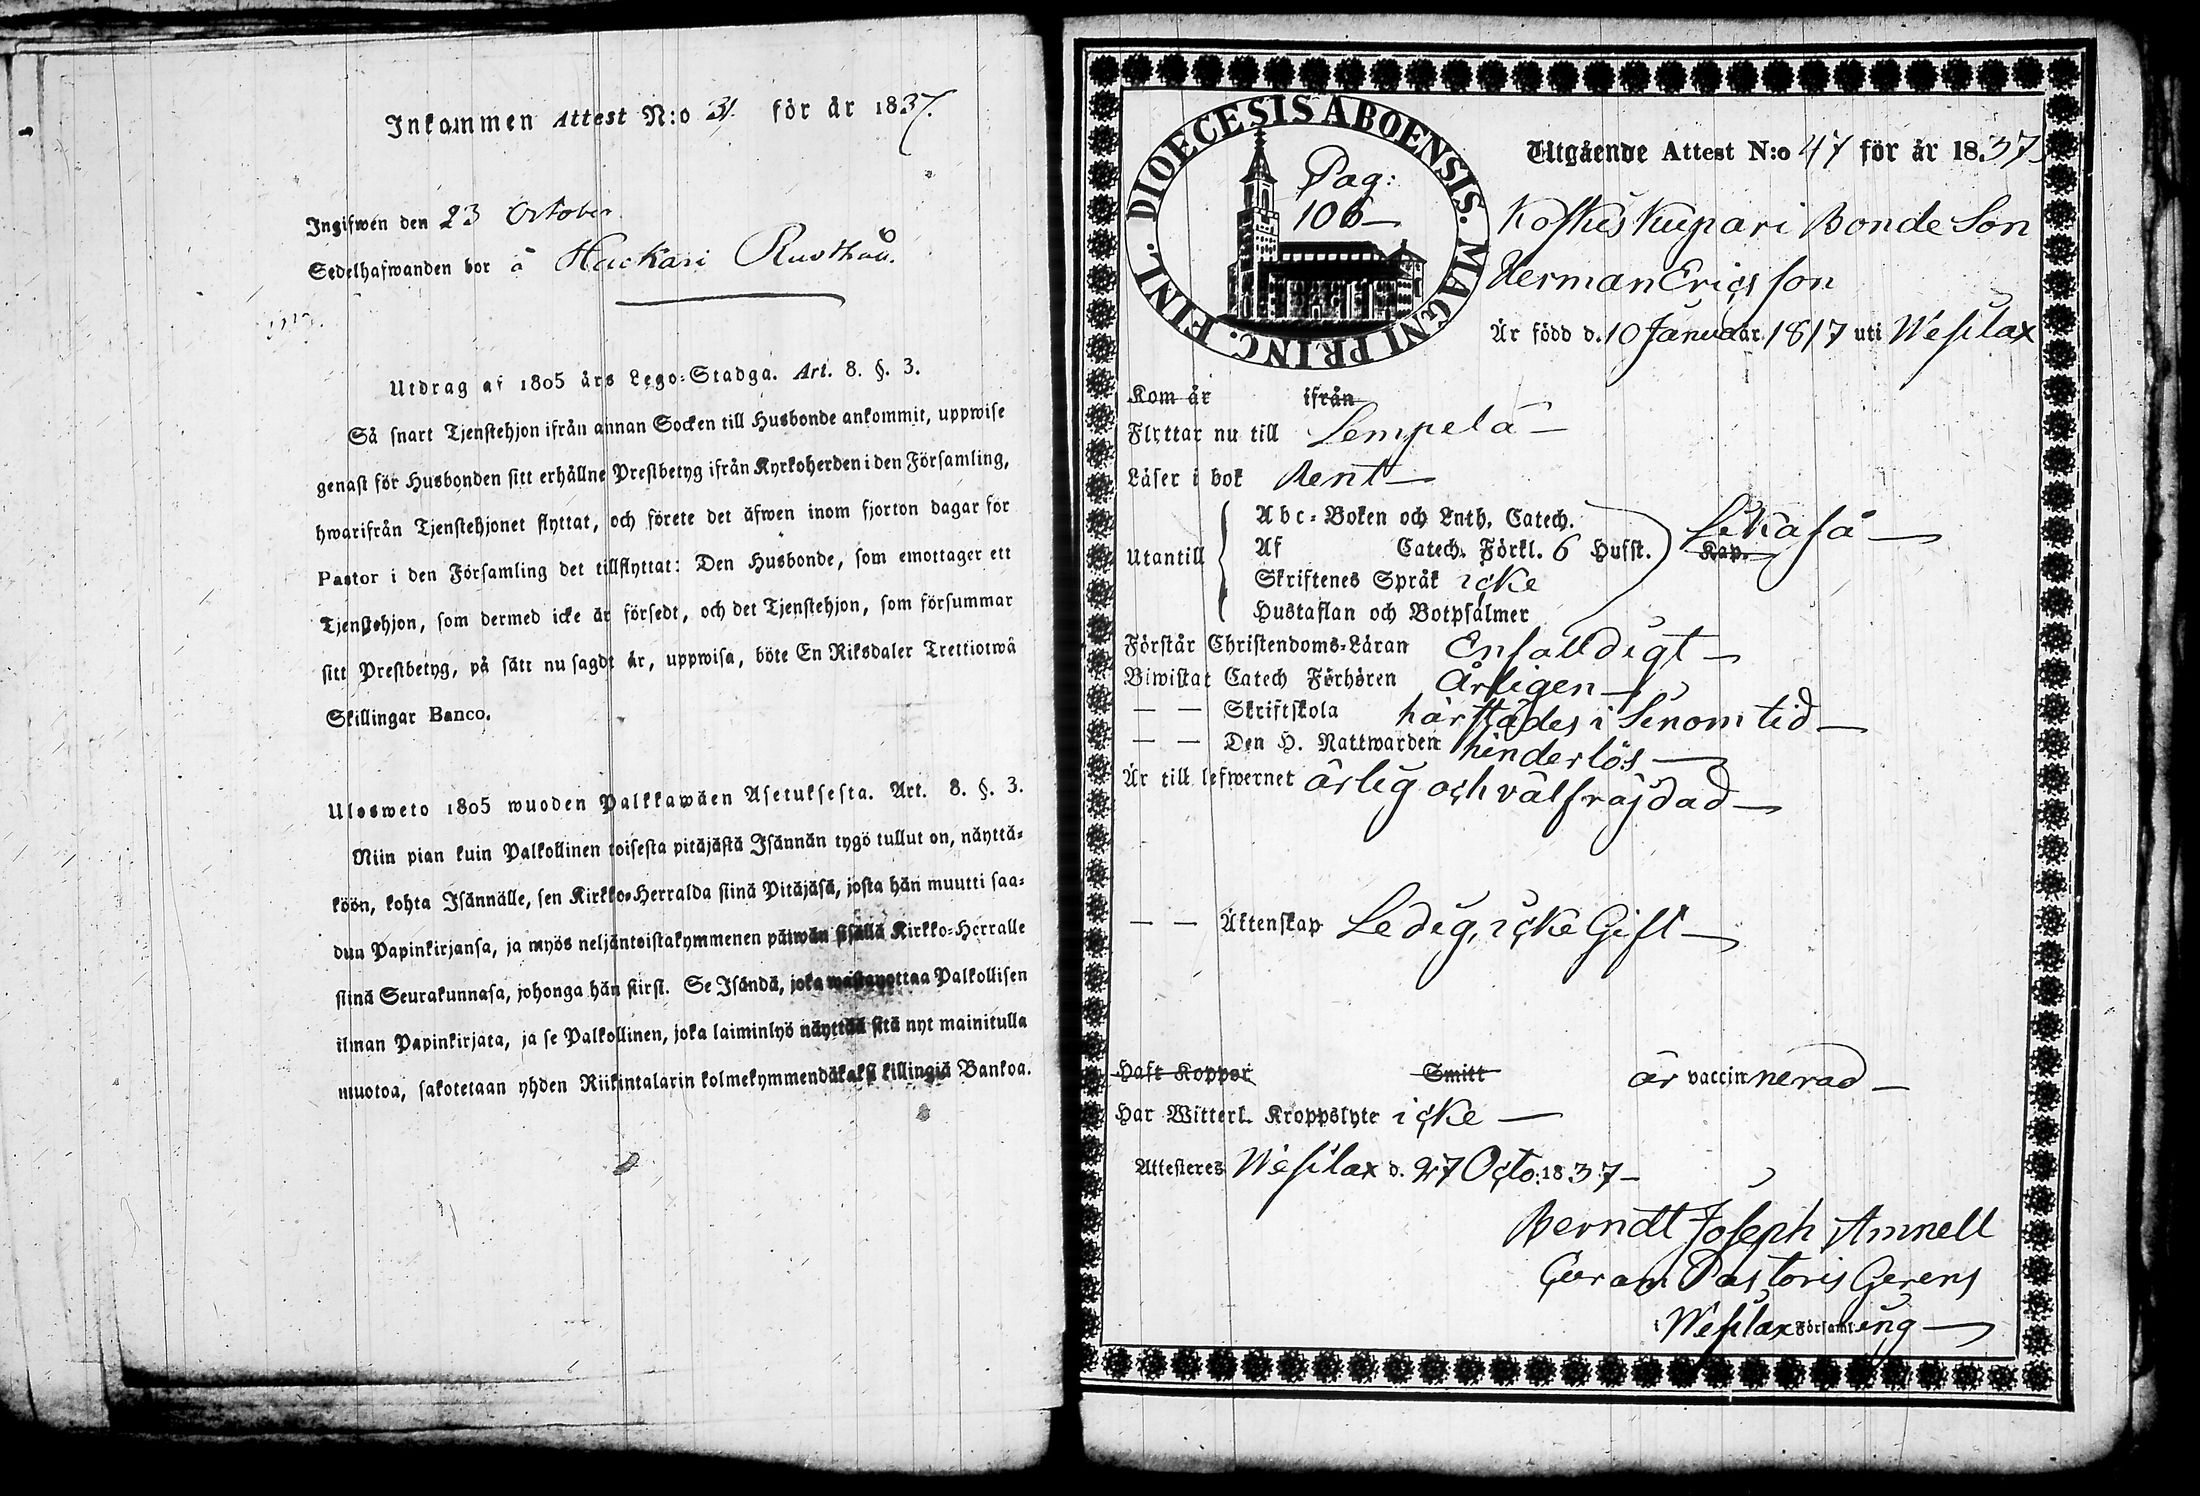 Inkommen Attest N:o 31. för år 1837.
Ingifwen den 23 October
Sedelhafwanden bor å Hackari Rusthåll.
Utdrag af 1805 års Lego-Stadga. Art. 8. §. 3.
Så snart Tjenstehjon ifrån annan Socken till Husbonde ankommit, uppwise
genast för Husbonden sitt erhållne Prestbetyg ifrån Kyrkoherden i den Församling,
hwarifrån Tjenstehjonet flyttat, och förete det äfwen inom fjorton dagar för
Pastor i den Församling det tillflyttat: Den Husbonde, som emottager ett
Tjenstehjon, som dermed icke är försedt, och det Tjenstehjon, som försummar
sitt Prestbetyg, på sätt nu sagdt är, uppwisa, böte En Riksdaler Trettiotwå
Skillingar Banco.
Ulosweto 1805 wuoden Palkkawäen Asetuksesta. Art. 8. §. 3.
Niin pian kuin Palkollinen toisesta pitäjästä Isännän tygö tullut on, näyttä-
köön, kohta Isännälle, sen Kirkko-Herralda siinä Pitäjäsä, josta hän muutti saa-
dun Papinkirjansa, ja myös neljäntoistakymmenen päiwän sisällä Kirkko-Herralle
siinä Seurakunnasa, johonga hän siirsi. Se Isändä, joka wastanottaa Palkollisen
ilman Papinkirjata, ja se Palkollinen, joka laiminlyö näyttää sitä nyt mainitulla
muotoa, sakotetaan yhden Riikintalarin kolmekymmendäkaksi killingiä Bankoa.
DIOECESIS ABOENSIS. MAGNI PRINC. FINL.
Pag:
106
Utgående Attest N:o 47 för år 1837
Koskis Kupari Bonde Son
Herman Ericsson
Är född d. 10 Januar. år 1817 uti Wesilax
Kom år ifrån
Flyttar nu till Lempelä
Läser i bok Rent
Utantill
Abc-Boken och Luth. Catech.
Af Catech. Förkl. 6 Hufst. Kap. Likaså
Skriftenes Språk icke
Hustaflan och Botpsalmer
Förstår Christendoms-Läran Enfalldigt
Biwistat Catech Förhören Årligen
— — Skriftskola härstädes i Sinom tid
— — Den H. Nattwarden hinderlös
Är till lefwernet ärlig och välfräjdad
— — Äktenskap Ledig, icke Gift
Haft Koppor Smitt är vaccinnerad
Har Witterl. Kroppslyte icke
Attesteres Wesilax d. 27 Octo: 1837
Berndt Joseph Amnell
Curam Pastoris Gerens
i Wesilax Församling